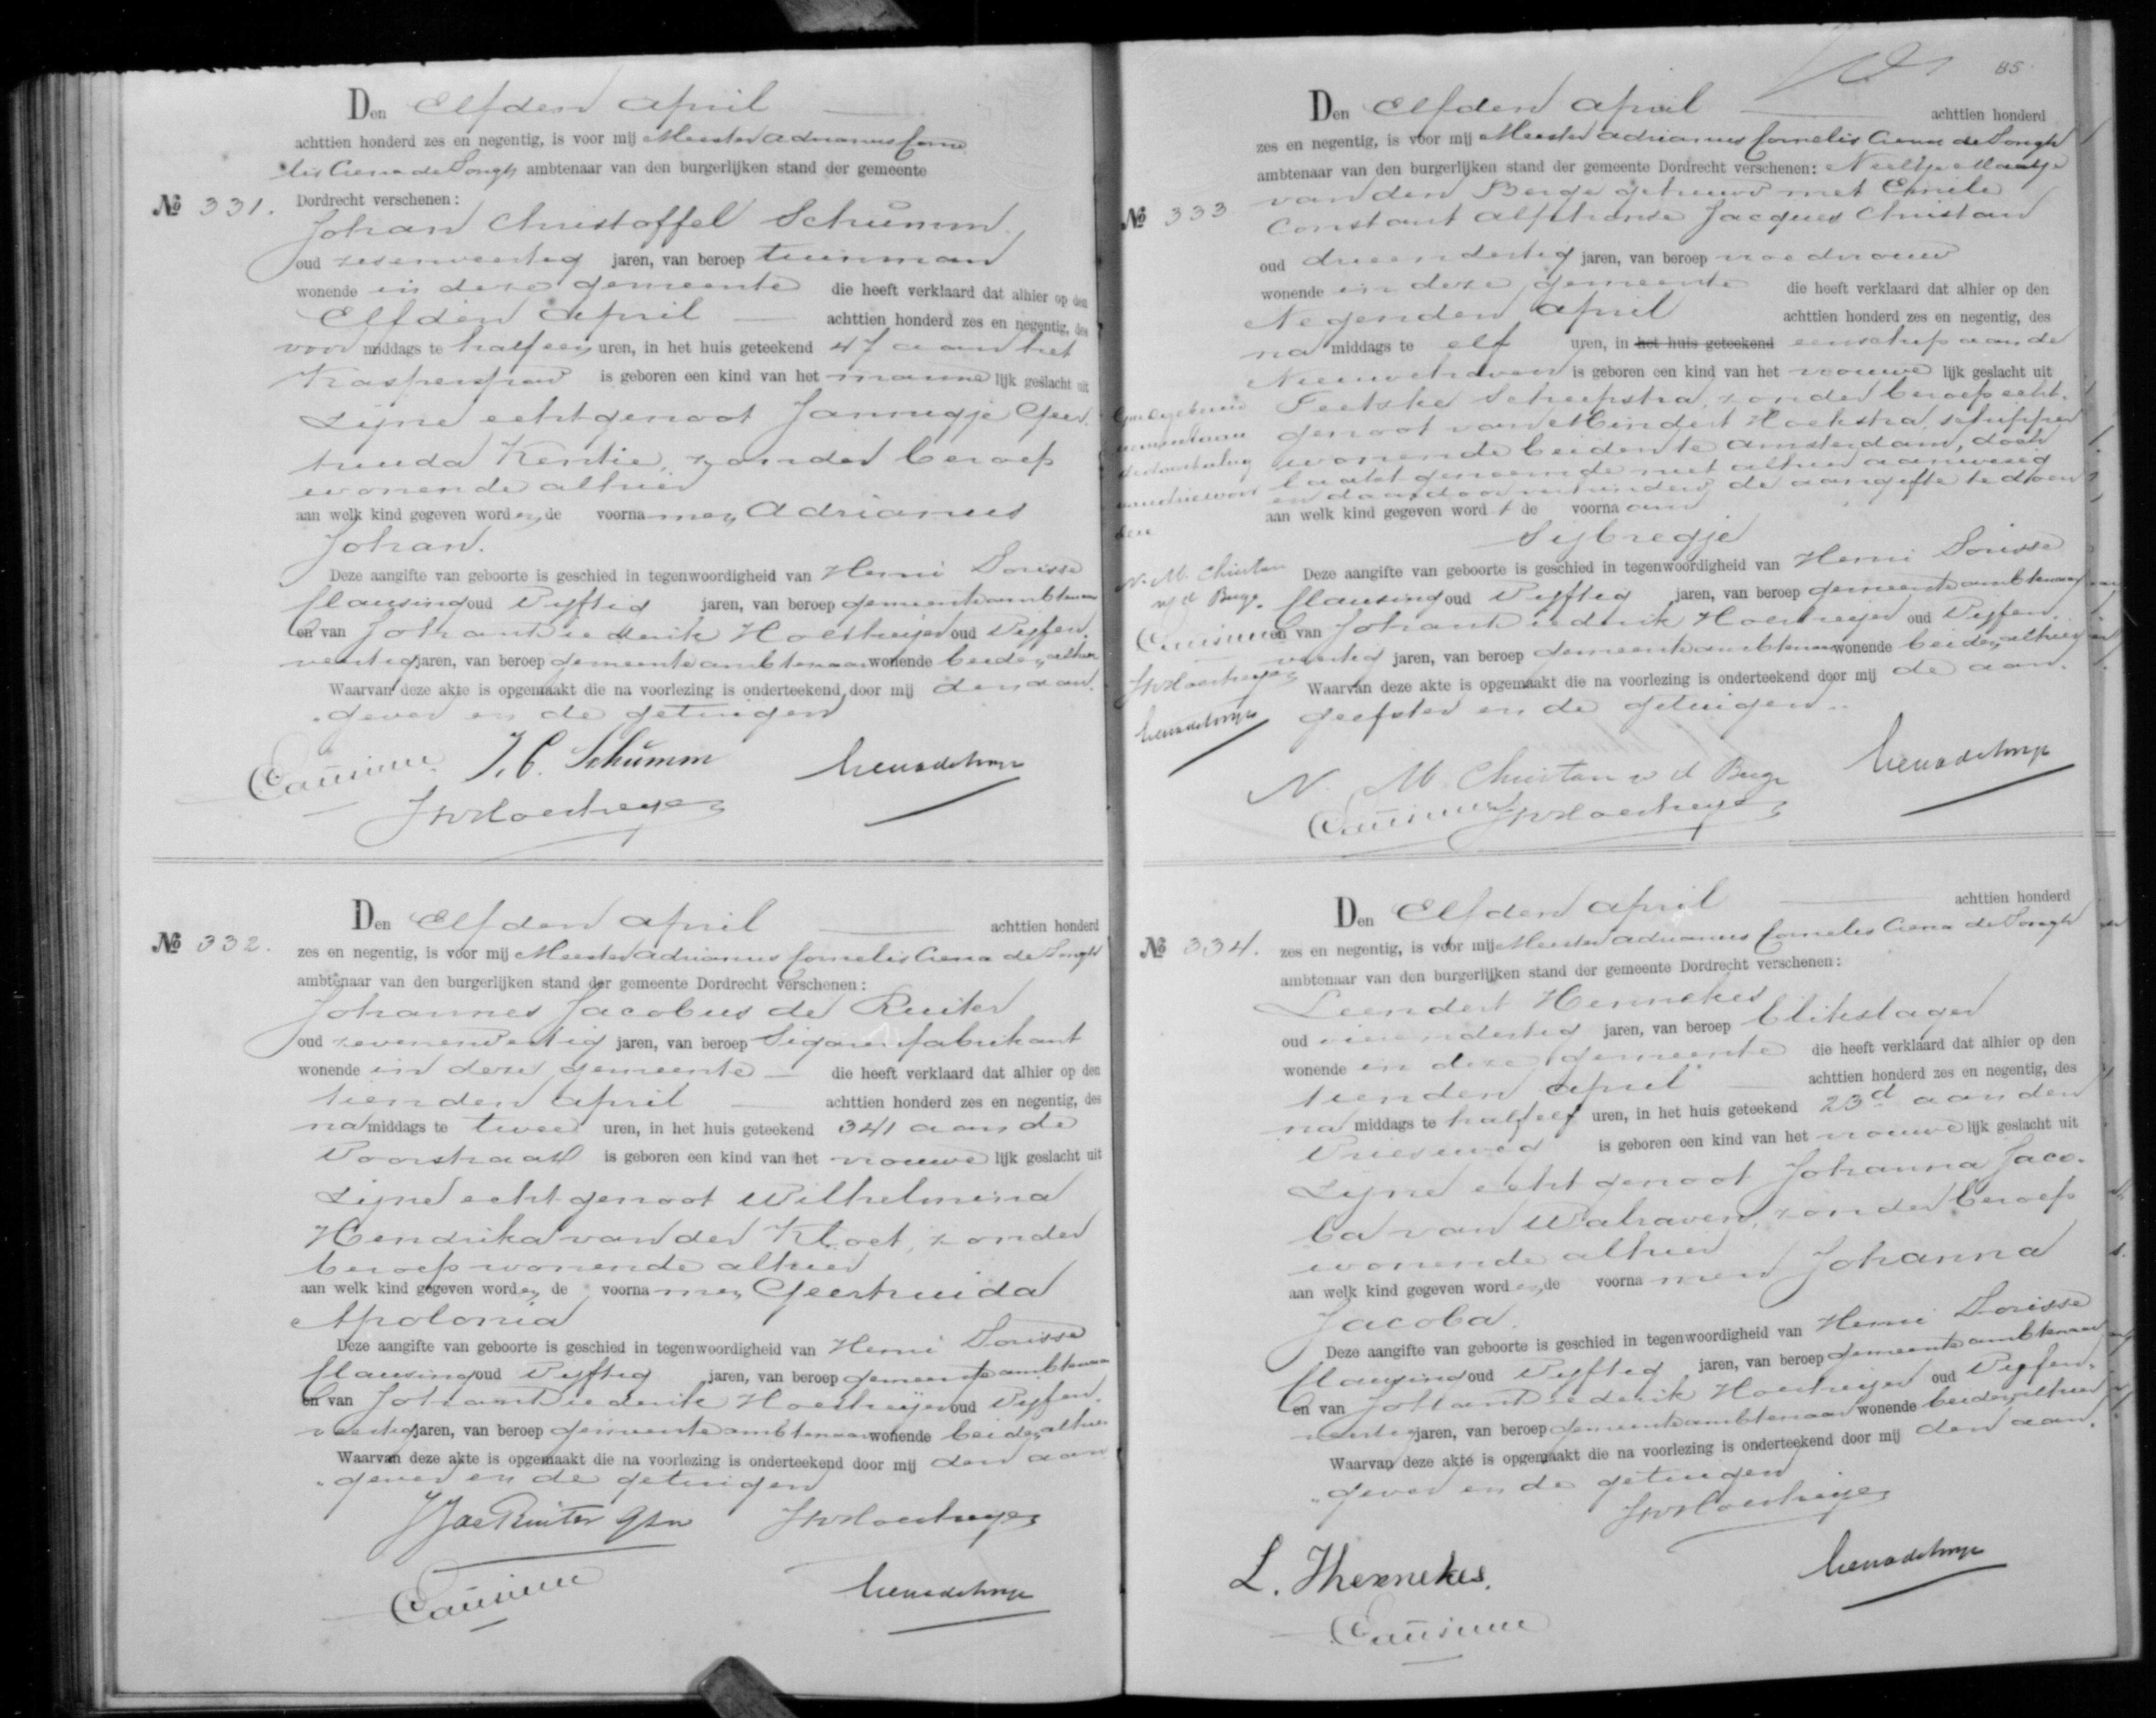 Den Elfden April
achttien honderd zes en negentig, is voor mij Meester Adrianus Corne
lis Crena de Iongh, ambtenaar van den burgerlijken stand der gemeente
No 331. Dordrecht verschenen:
Johan Christoffel Schumm
oud zesenveertig jaren, van beroep tuinman
wonende in deze gemeente die heeft verklaard dat alhier op den
Elfden April achttien honderd zes en negentig, des
voor middags te half een uren, in het huis geteekend 47 aan het
Kasperspad is geboren een kind van het manne lijk geslacht uit
zijne echtgenoot Jannigje Geer
truida Kentie, zonder beroep
wonende alhier
aan welk kind gegeven worden de voornamen Adrianus
Johan.
Deze aangifte van geboorte is geschied in tegenwoordigheid van Henri Dorisse
Clausing oud Vijftig jaren, van beroep gemeenteambtenaar
en van Johan Diederik Hoestreijer oud Vijfen
veertig jaren, van beroep gemeenteambtenaar wonende beiden alhier
Waarvan deze akte is opgemaakt die na voorlezing is onderteekend door mij den aan-
gever en de getuigen
J. C. Schumm Crena de Iongh
JDHoestreijer
Den Elfden April achttien honderd
No 332. zes en negentig, is voor mij Meester Adrianus Cornelis Crena de Iongh
ambtenaar van den burgerlijken stand der gemeente Dordrecht verschenen:
Johannes Jacobus de Ruiter
oud zevenenveertig jaren, van beroep Sigarenfabrikant
wonende in deze gemeente die heeft verklaard dat alhier op den
tienden April achttien honderd zes en negentig, des
na middags te twee uren, in het huis geteekend 341 aan de
Voorstraat is geboren een kind van het vrouwe lijk geslacht uit
zijne echtgenoot Wilhelmina
Hendrika van der Kloet, zonder
beroep wonende alhier
aan welk kind gegeven worden de voornamen Geertruida
Apolonia
Deze aangifte van geboorte is geschied in tegenwoordigheid van Henri Dorisse
Clausing oud Vijftig jaren, van beroep gemeenteambtenaar
en van Johan Diederik Hoestreijer oud Vijfen
veertig jaren, van beroep gemeenteambtenaar wonende beiden alhier
Waarvan deze akte is opgemaakt die na voorlezing is onderteekend door mij den aan
gever en de getuigen
JJdeRuiter JDHoestreijer
Crena de Iongh
85
Den Elfden April achttien honderd
zes en negentig, is voor mij Meester Adrianus Cornelis Crena de Iongh
ambtenaar van den burgerlijken stand der gemeente Dordrecht verschenen: Neeltje Maatje
van den Berge gehuwd met Emile
No 333 Constant Alphonse Jacques Christan
oud drieendertig jaren, van beroep vroedvrouw
wonende in deze gemeente die heeft verklaard dat alhier op den
Negenden April achttien honderd zes en negentig, des
na middags te elf uren, in het huis geteekend een schip aan de
Nieuwehaven is geboren een kind van het vrouwe lijk geslacht uit
Feetske Scheepstra, zonder beroep echt-
genoot van Mindert Hoekstra, schipper
wonende beiden te Amsterdam, doch
laatstgenoemde niet alhier aanwezig
en daardoor verhinderd de aangifte te doen
aan welk kind gegeven wordt de voornaam
Sijbregje
Deze aangifte van geboorte is geschied in tegenwoordigheid van Henri Dorisse
Clausing oud Vijftig jaren, van beroep gemeenteambtenaar
en van Johan Diederik Hoestreijer oud Vijfen
veertig jaren, van beroep gemeenteambtenaar wonende beiden alhier
Waarvan deze akte is opgemaakt die na voorlezing is onderteekend door mij de aan-
geefster en de getuigen
N. M. Christan
v/d Berge
JDHoestreijer
Crena de Iongh
N. M. Christan v d Berge Crena de Iongh
JDHoestreijer
Den Elfden April achttien honderd
No 334. zes en negentig, is voor mij Meester Adrianus Cornelis Crena de Iongh
ambtenaar van den burgerlijken stand der gemeente Dordrecht verschenen:
Leendert Hennekes
oud vierendertig jaren, van beroep blikslager
wonende in deze gemeente die heeft verklaard dat alhier op den
tienden April achttien honderd zes en negentig, des
na middags te half elf uren, in het huis geteekend 23d aan den
Vrieseweg is geboren een kind van het vrouwe lijk geslacht uit
zijne echtgenoot Johanna Jaco-
ba van Walraven, zonder beroep
wonende alhier
aan welk kind gegeven worden de voornamen Johanna
Jacoba.
Deze aangifte van geboorte is geschied in tegenwoordigheid van Henri Dorisse
Clausing oud Vijftig jaren, van beroep gemeenteambtenaar
en van Johan Diederik Hoestreijer oud Vijfen
veertig jaren, van beroep gemeenteambtenaar wonende beiden alhier
Waarvan deze akte is opgemaakt die na voorlezing is onderteekend door mij den aan-
gever en de getuigen
JDHoestreijer
L. Hennekes. Crena de Iongh